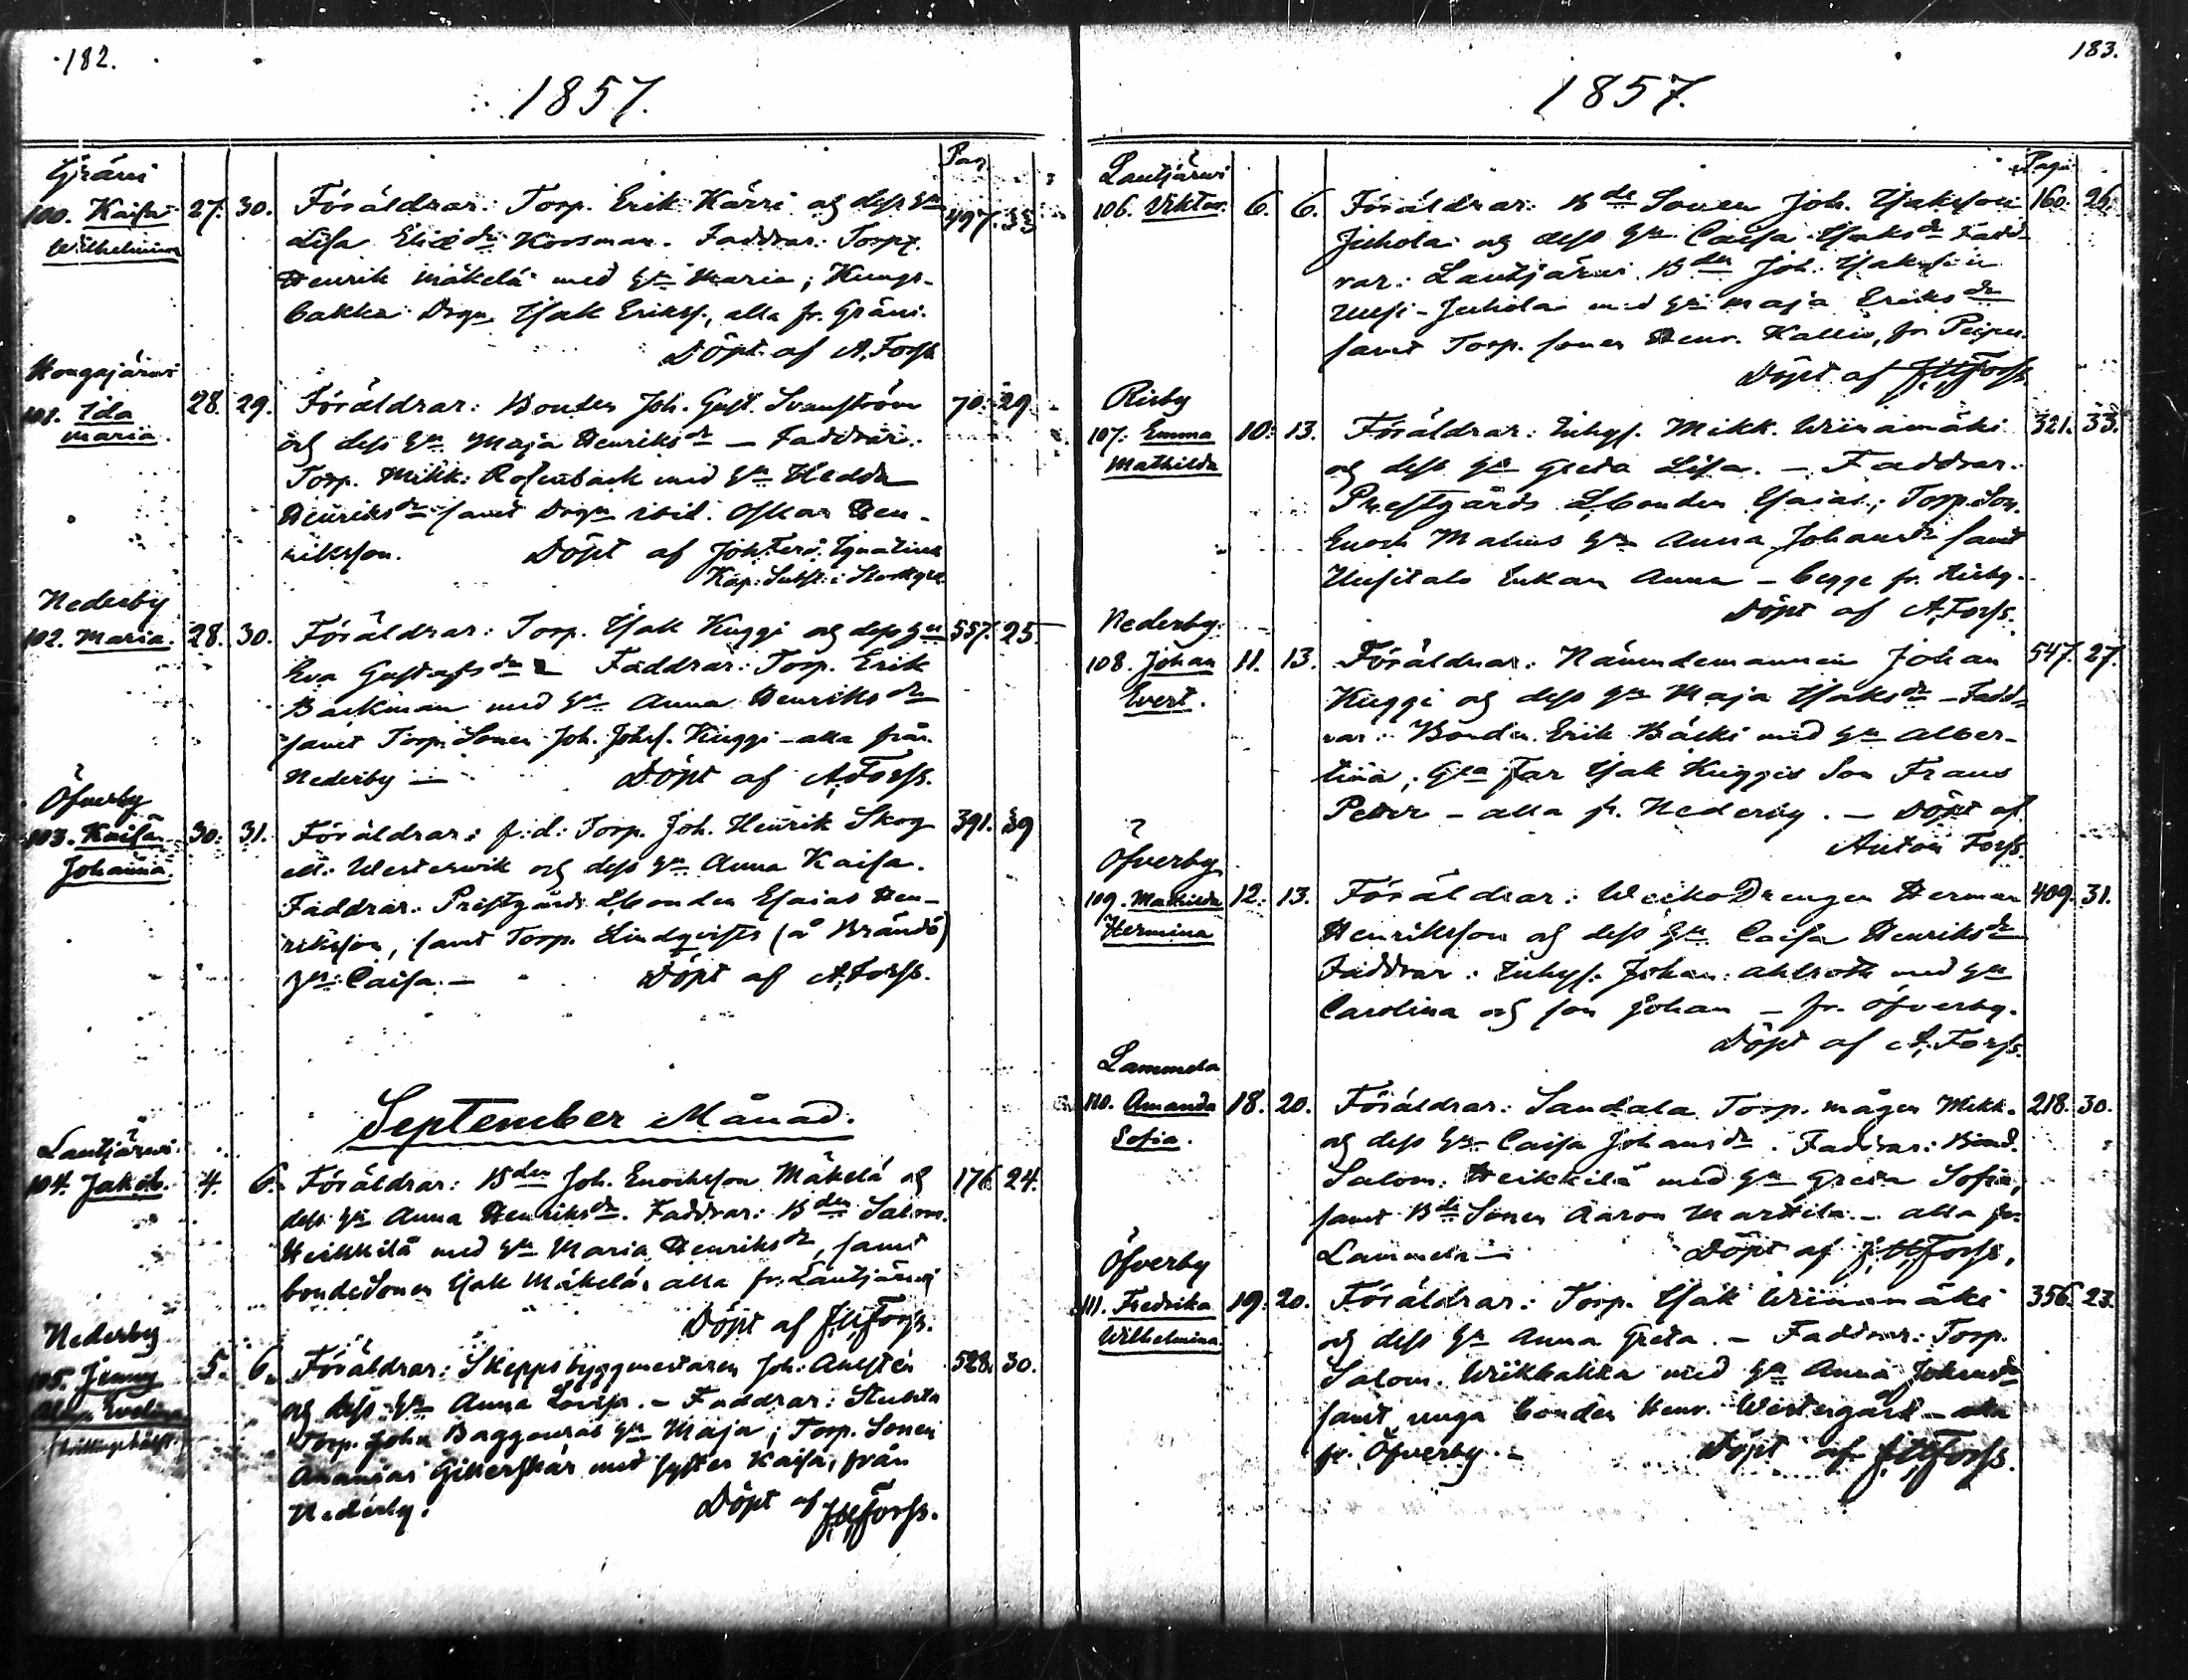 182.
1857.
Pag.
Gräni
100. Kaisa 27. 30. Föräldrar: Torp. Erik Kärri og dess h:u 497. 33
Wilhelmina Lisa Eliæ d:r Korsman. Faddrar: Torp.
Henrik Mäkelä med h:u Maria; Kungs-
bakka Drgn Isak Erikss., alla fr. Gräni.
Döpt af A. Forss.
Hongajärvi
101. Ida 28. 29. Föräldrar: Bonden Joh. Gust. Svanström 70. 29
Maria. og dess h:u Maja Henriks d:r — Faddrar:
Torp. Mikk. Rosenback med h:u Hedda
Henriks d:r samt Drgn Oskar Hen-
riksson. Döpt af Joh. Ferd. Ignatius
Kap: Subst: i
Nederby
102. Maria. 28. 30. Föräldrar: Torp. Isak Kuggi og dess h:u 557. 25.
Eva Gustafs d:r — Faddrar: Torp. Erik
Backman med h:u Anna Henriks d:r
samt Torp. Sonen Joh. Johss. Kuggi — alla från
Nederby — Döpt af A. Forss.
Öfverby
103. Kaisa 30. 31. Föräldrar: f.d. Torp. Joh. Henrik Skog 391. 39
Johanna. ell. Westervik og dess h:u Anna Kaisa.
Faddrar: Prestgårds Lbonden Esaias Hen-
riksson, samt Torp. Lindqvists (å Brändö)
h:u Caisa. — Döpt af A. Forss.
September Månad.
Lautjärvi
104. Jakob. 4. 6. Föräldrar: B den Joh. Enochsson Mäkelä og 176 24.
dess h:u Anna Henriks d:r. Faddrar: B den Salom.
Heikkilä med h:u Maria Henriks d:r, samt
bondeSonen Isak Mäkelä, alla fr. Lautjärvi
Döpt af J. H. Forss.
Nederby
105. Jenny 5. 6. Föräldrar: Skeppsbyggmestaren Joh: Ahlstén 528. 30.
Evelina og dess h:u Anna Lovisa. — Faddrar:
Torp. John Baggenäs h:u Maja; Torp. Sonen
Ananias Gillerskär med syster Kaisa, från
Nederby. Döpt af J. H. Forss.
183.
1857.
Pagin.
Lautjärvi
106. Viktor. 6. 6. Föräldrar: B de Sonen Joh. Isaksson 160. 26.
Juhola og dess h:u Caisa Isaks d:r Fadd-
rar: Lautjärvi B den Joh. Isaksson
Uusi-Juhola med h:u Maja Eriks d:r
samt Torp. sonen Henr. Kallio, fr Peipu.
Döpt af J. H. Forss
Risby
107. Emma 10. 13. Föräldrar: Inhys. Mikk. Wiinamäki 321. 33.
Mathilda og dess h:u Greta Lisa. — Faddrar:
Prestgårds Lbonden Esaias; Torp. Son.
Enoch Malins h:u Anna Johans d:r samt
Uusitalo Enkan Anna — begge fr. Risby.
Döpt af A. Forss.
Nederby.
108. Johan 11. 13. Föräldrar: Nämndemannen Johan 547. 27.
Evert. Kuggi og dess h:u Maja Isaks d:r — Fadd-
rar: Bonden Erik Bäcki med h:u Alber-
tina; G:la Far Isak Kuggis Son Frans
Petter — alla fr. Nederby. — Döpt af
Anton Forss.
Öfverby
109. Mathilda 12. 13. Föräldrar: WeckoDrengen Herman 409. 31.
Hermina Henriksson og dess h:u Caisa Henriks d:r
Faddrar: Inhys. Johan Ahlroth med h:u
Carolina og son Johan — fr. Öfverby.
Döpt af A. Forss.
Lammela
110. Amanda 18. 20. Föräldrar: Sandala Torp. mågen Mikk. 218. 30.
Sofia. og dess h:u Caisa Johans d:r. Faddrar: Bond.
Salom. Heikkilä med h:u Greta Sofia,
samt B de Sonen Aaron Marttila — alla fr.
Lammela — Döpt af J. H. Forss.
Öfverby
111. Fredrika 19. 20. Föräldrar: Torp. Isak Wiinamäki 356. 23.
Wilhelmina. og dess h:u Anna Greta. — Faddrar: Torp.
Salom. Wiikbakka med h:u Anna Johans d:r
samt unga bonden Henr. Westergård — alla
fr. Öfverby. — Döpt af J. H. Forss.